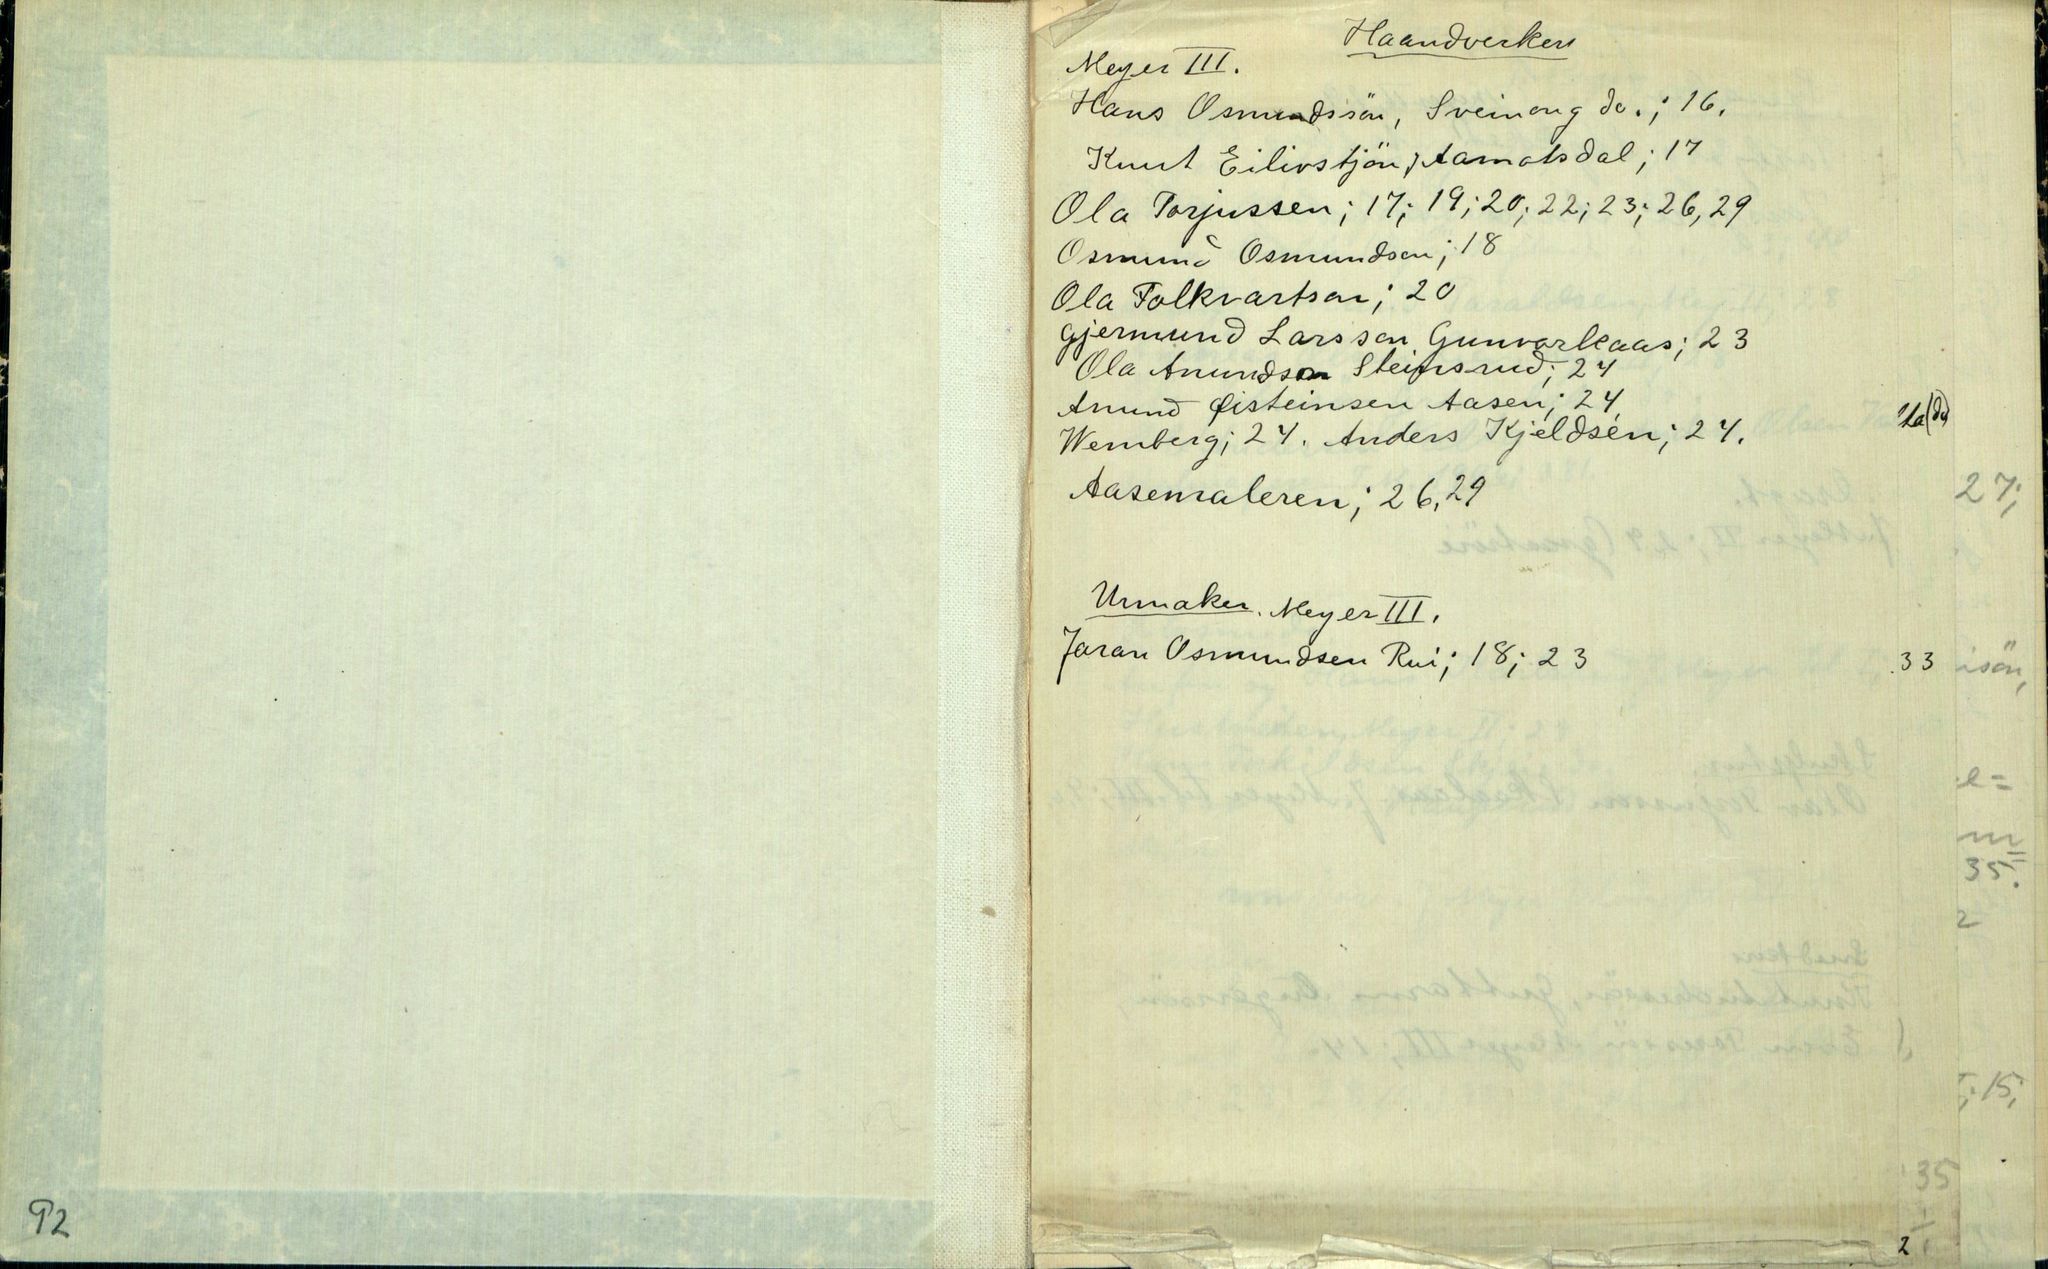 Haandverkere
Meyer III.
Hans Osmundssön, Sveinong do.; 16.
Knut Eilivstjön, Aamotsdal; 17
Ola Torjussen; 17; 19; 20; 22; 23; 26, 29
Osmund Osmundson; 18
Ola Folkvartson; 20
Gjermund Larsson Gunvarkaas; 23
Ola Anundson Steinsrud; 24
Anund Øisteinsen Aasen; 24
Wemberg; 24. Anders Kjeldsen; 24.
Aasemaleren; 26, 29
Urmaker. Meyer III.
Jaran Osmundsen Rui; 18; 23
33
27;
isön,
e=
m
35.
2
; 15;
35
2
92